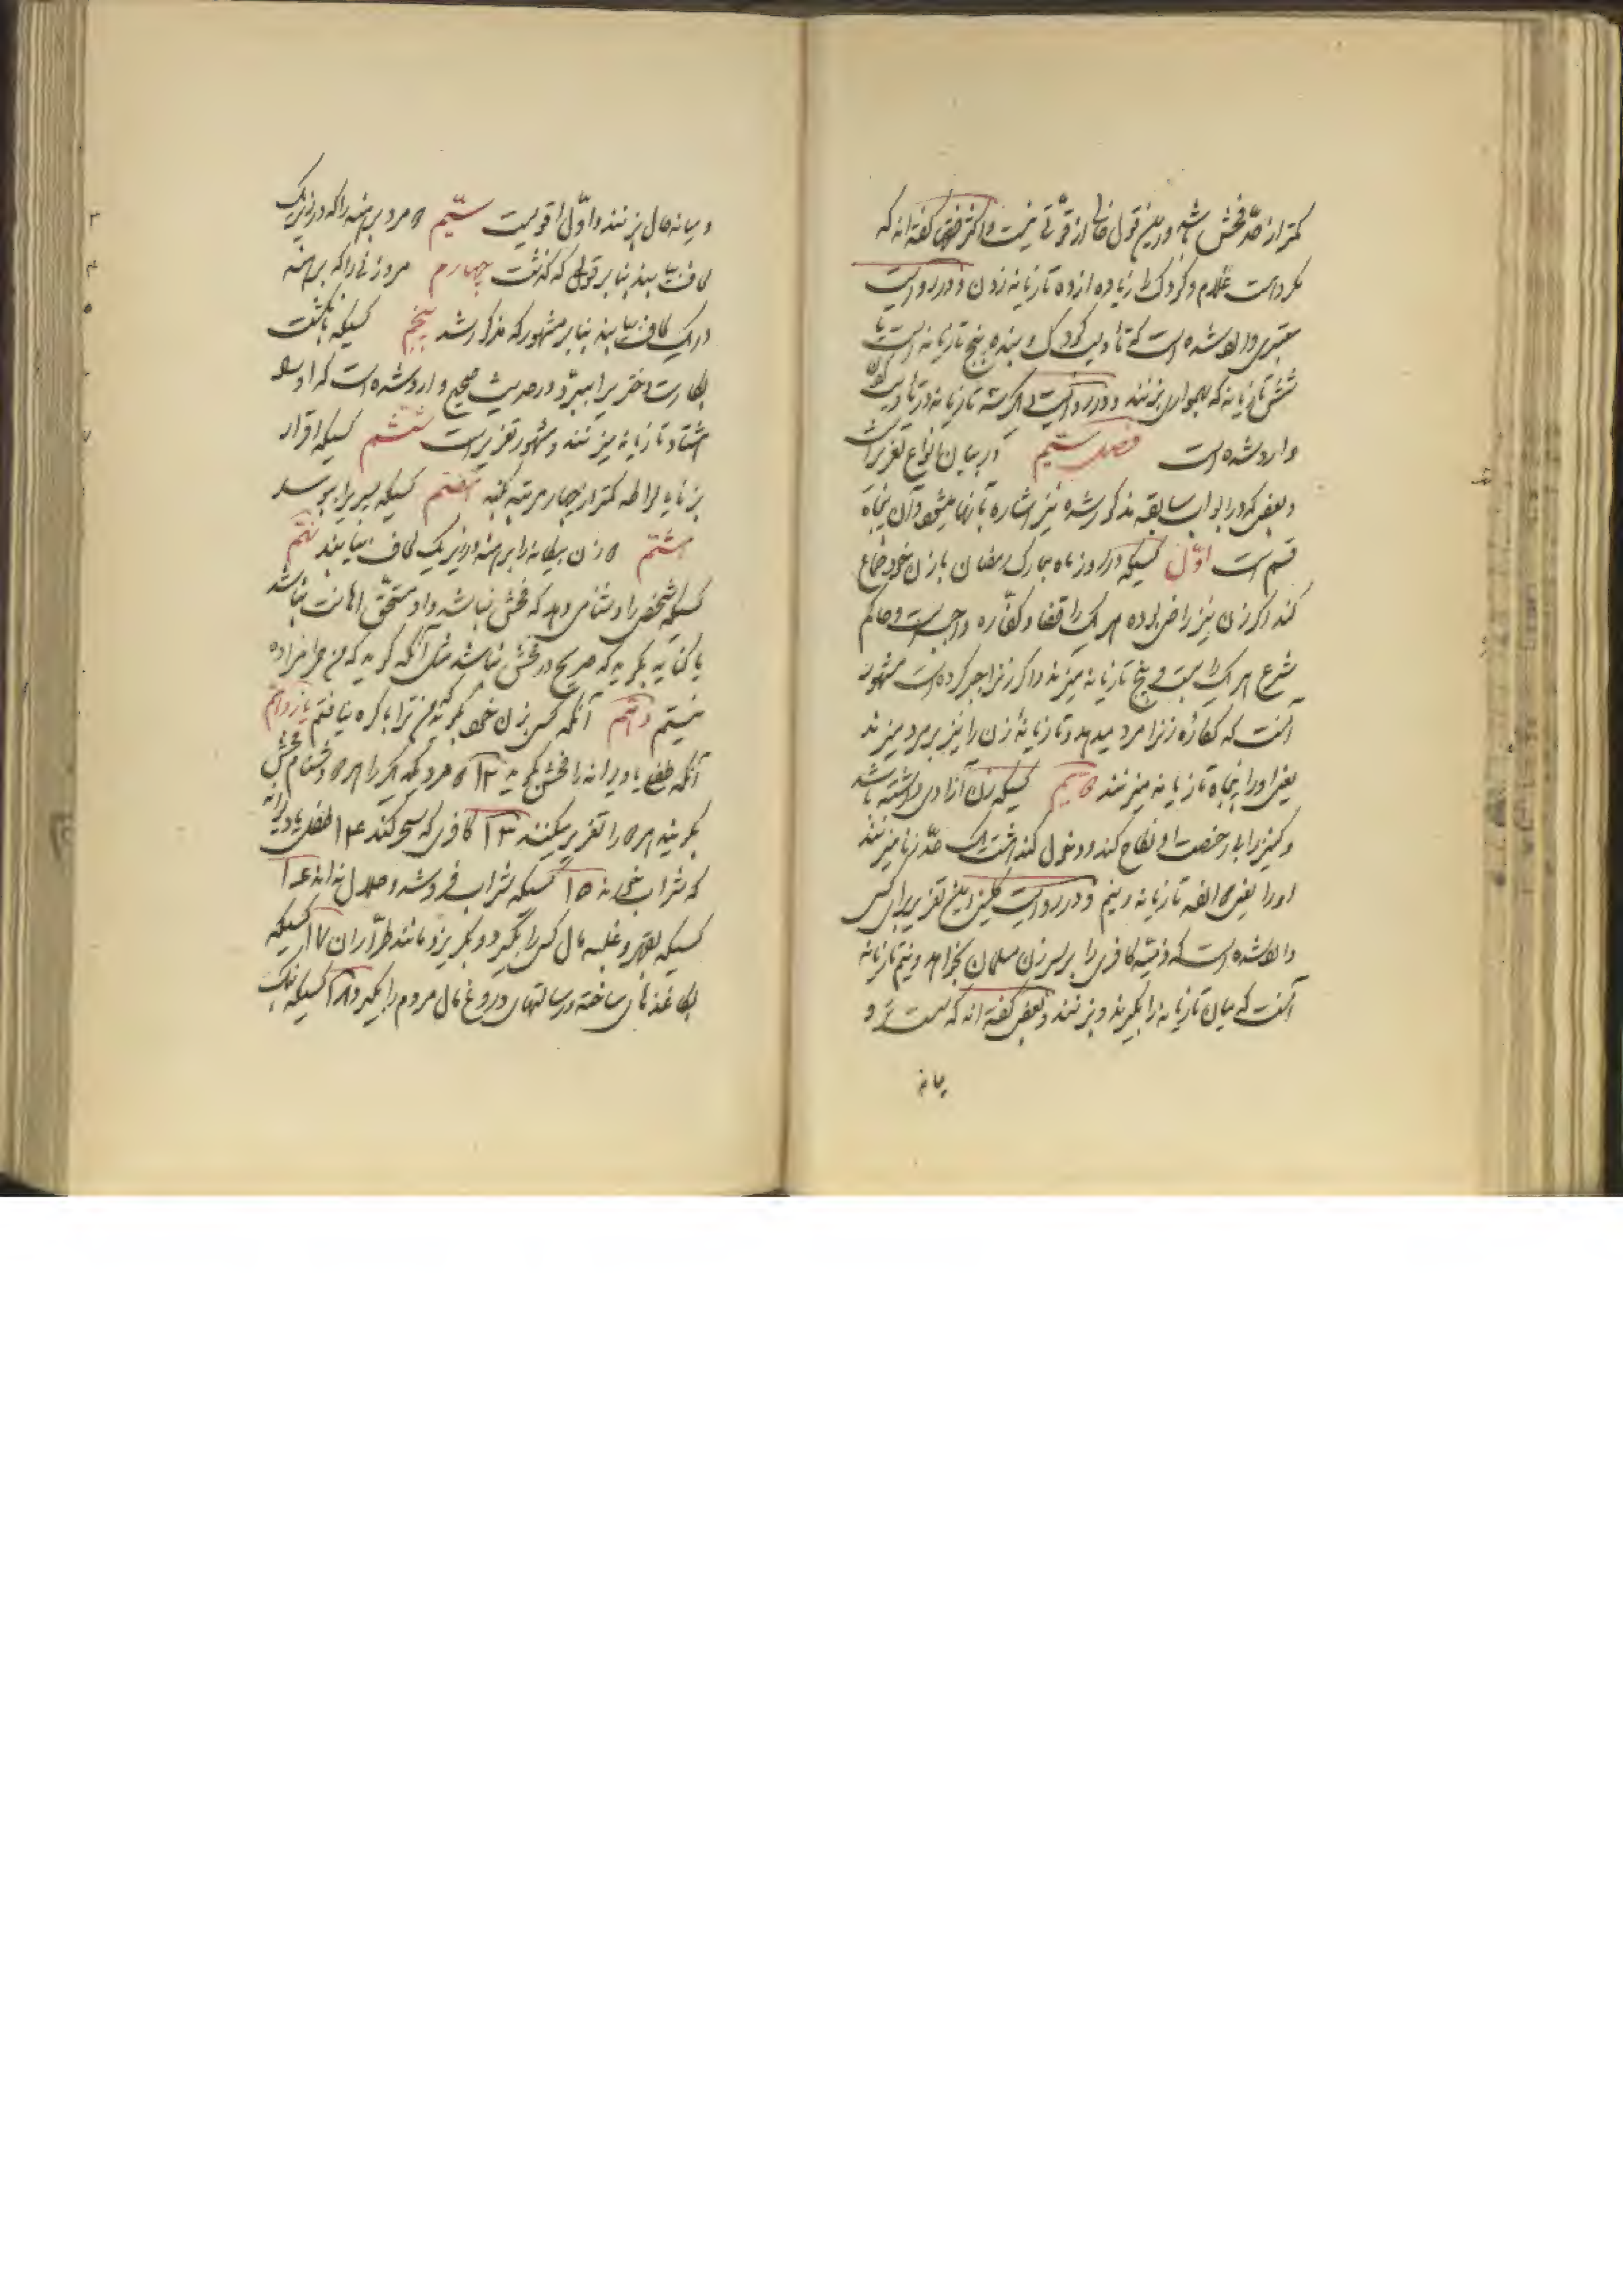 کمتر از حدّ فحش باشد و این قول خالی از قوّتی نیست و اکثر فقها گفته‌اند که
مکروهست غلام و کودک را زیاده از ده تازیانه زدن و در روایت
معتبری وارد شده است که تأدیب کودک و بنده پنج تازیانه است یا
شش تازیانه که بهمواری بزنند و در روایت دیگر سه تازیانه در تأدیب کودک
وارد شده است فصل سیّم در بیان انواع تعزیرات
و بعضی که در ابواب سابقه مذکور شده نیز اشاره بآنها میشود و آن پنجاه
قسم است اوّل کسیکه در روز ماه مبارک رمضان با زن خود جماع
کند اگر زن نیز راضی بوده هر یک را قضا و کفّاره واجبست و حاکم
شرع هر یک را بیست و پنج تازیانه میزند و اگر زنرا جبر کرده است مشهور
آنست که کفارهٔ زنرا مرد میدهد و تازیانهٔ زن را نیز بر مرد میزند
یعنی او را پنجاه تازیانه میزنند دویم کسیکه زن آزادی داشته باشد
و کنیزیرا بی رخصت او نکاح کند و دخول کند هشت یک حدّ زنا میزنند
او را یعنی دوازده تازیانه و نیم و در روایت همین مبلغ تعزیر برای کسی
وارد شده است که ذمیّه کافری را بر سر زن مسلمان بخواهد و نیم تازیانه
آنست که میان تازیانه را بگیرند و بزنند و بعضی گفته‌اند که سست تر و
میانه
و میانه حال بزنند و اوّل اقویست سیّم دو مرد برهنه را که در زیر یک
لحاف بیابند بنا بر قولی که گذشت چهارم مرد و زنی را که برهنه
در یک لحاف بیابند بنا بر مشهور که مذکور شد پنجم کسیکه بانگشت
بکارت دختریرا ببرد و در حدیث صحیح وارد شده است که او را
هشتاد تازیانه میزنند و مشهور تعزیر است ششم کسیکه اقرار
بزنا یا لواطه کمتر از چهار مرتبه بکند هفتم کسیکه پسریرا ببوسد
هشتم دو زن بیگانه را برهنه در زیر یک لحاف بیابند نهم
کسیکه شخصی را دشنامی دهد که فحش نباشد و او مستحقّ اهانت نباشد
یا کنایه بگوید که صریح در فحش نباشد مثل آنکه گوید که من حرامزاده
نیستم دهم آنکه کسی بزن خود بگوید من ترا باکره نیافتم یازدهم
آنکه طفلی یا دیوانه را فحش بگوید ۱۲ دو مرد که یکدیگر را هر دو دشنام فحش
بگویند هر دو را تعزیر میکنند ۱۳ کافری که سحر کند ۱۴ طفلی یا دیوانه
که شراب بخورند ۱۵ کسیکه شراب فروشد و حلال نداند ۱۶
کسیکه بقهر و غلبه مال کسی را بگیرد و بگریزد مانند طرّاران ۱۷ کسیکه
بکاغذهای ساخته و رسالتهای دروغ مال مردم را بگیرد ۱۸ کسیکه بنگ